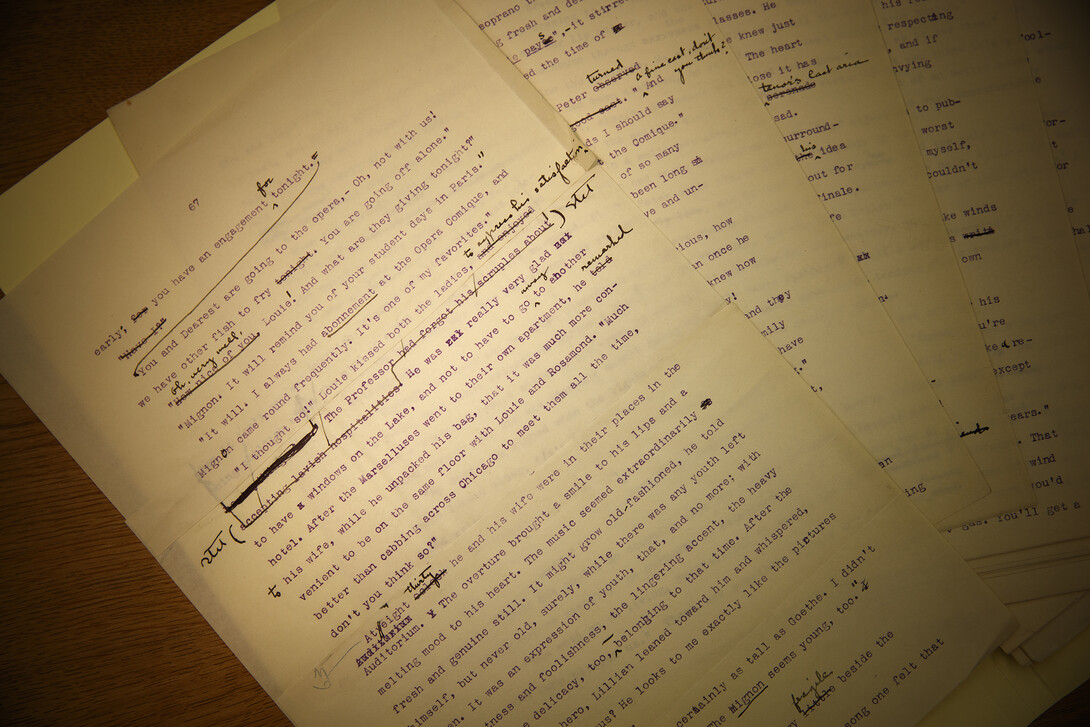 67
early; you have an engagement for tonight."
"You and Dearest are going to the opera,- Oh, not with us!
we have other fish to fry tonight. You are going off alone."
oh, very well,
"How kind of you, Louie! And what are they giving tonight?"
"Mignon. It will remind you of your student days in Paris."
"It will. I always had abonnement at the Opera Comique, and
Mignon came round frequently. It's one of my favorites."
"I thought so!" Louie kissed both the ladies, to express his satisfaction. and enjoyed
The Professor had forgot his scruples about) stet
stet (accepting lavish hospitalities. He was really very glad
to have a windows on the Lake, and not to have to go away to another
hotel. After the Marselluses went to their own apartment, he told remarked
to his wife, while he unpacked his bag, that it was much more con-
venient to be on the same floor with Louie and Rosamond. "Much
better than cabbing across Chicago to meet them all the time,
don't you think so?"
At eight thirty he and his wife were in their places in the
Auditorium
Auditorium. The overture brought a smile to his lips and a
melting mood to his heart. The music seemed extraordinarily
fresh and genuine still. It might grow old-fashioned, he told
himself, but never old, surely, while there was any youth left
en. It was an expression of youth, that, and no more; with
tness and foolishness, the lingering accent, the heavy
e delicacy, too,- belonging to that time. After the
hero, Lillian leaned toward him and whispered,
us? He looks to me exactly like the pictures
certainly as tall as Goethe. I didn't
he Mignon seems young, too."
beside the
song one felt that
soprano
g fresh and de
pays",-it stirre
ed the time of
Peter observed turned
good cast." And a fine cast, don't you think?
ds I should say
the Comique."
of so many
been long
ve and un-
ious, how
n once he
knew how
and they
mily
have
lasses. He
e knew just
The heart
ose it has
tenor's last aria
serenade
sad.
urround-
his idea
out for
inale.
fe
his
respecting
, and if
nvying
to pub-
worst
myself,
couldn't
ke winds
spite
own
his
u're
ked re-
except
and
ears."
That
wind
ou'd
You'll get a